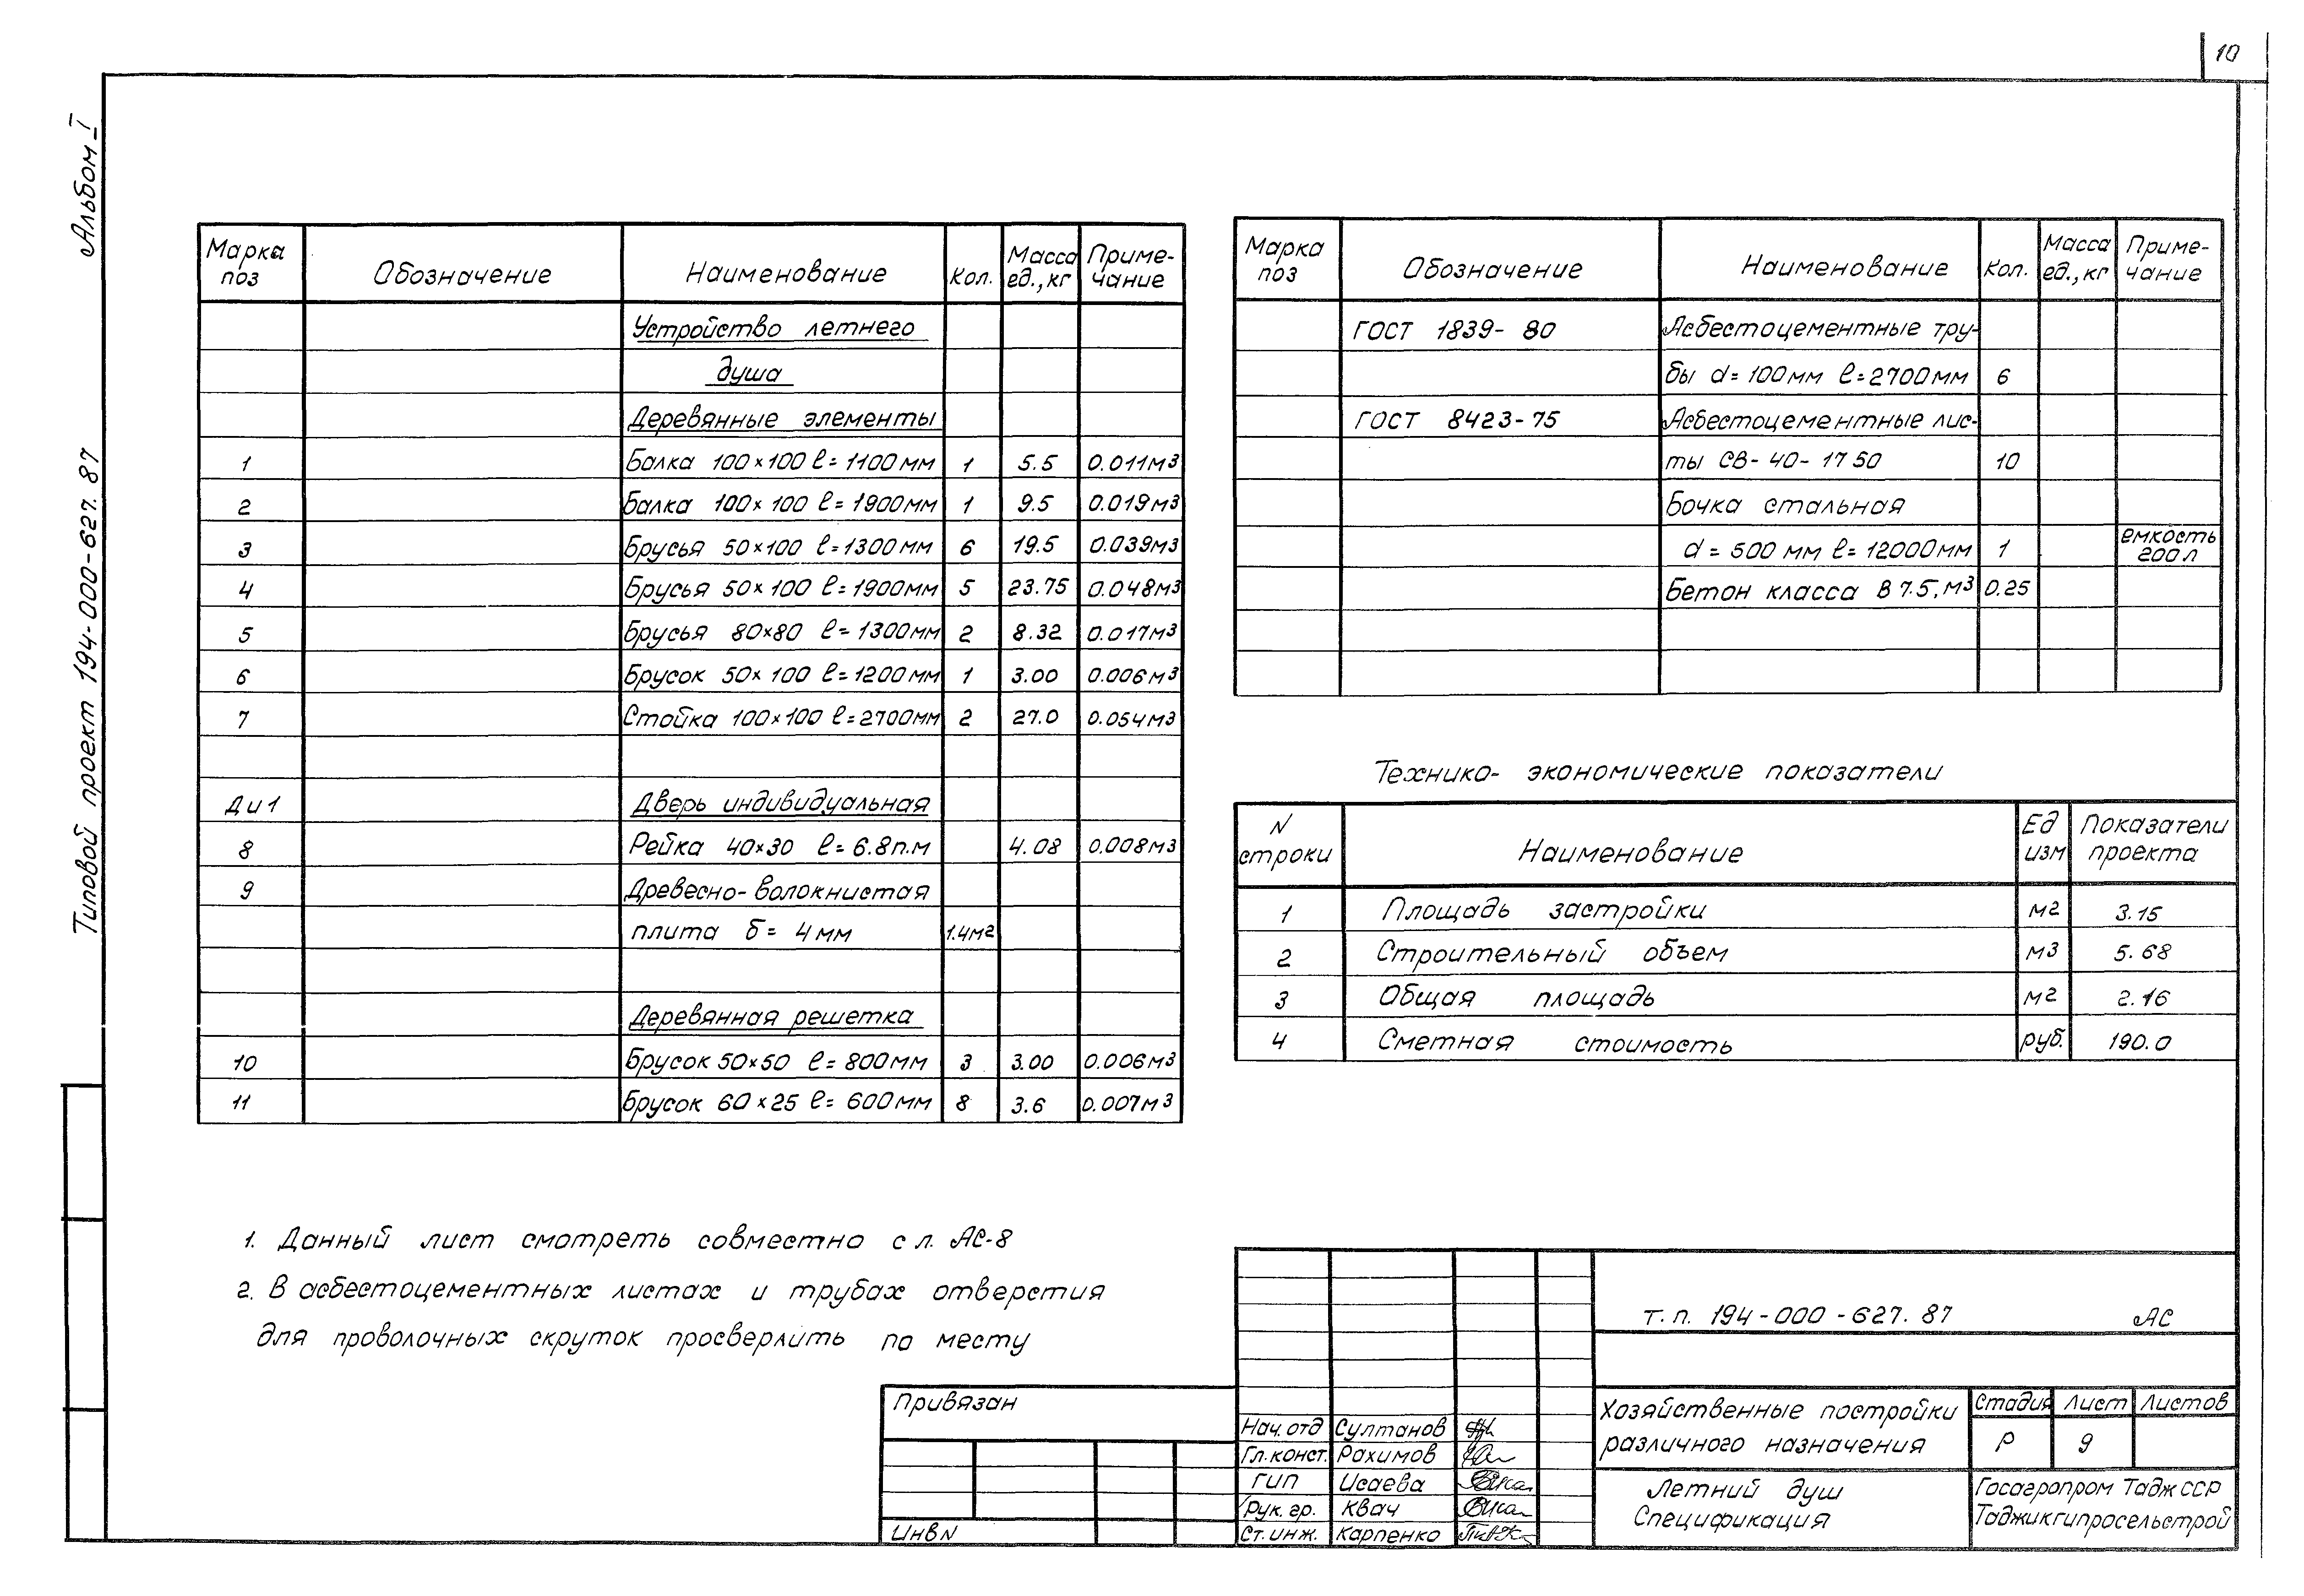 10
Альбом I
Типовой проект 194-000-627.87
Марка поз Обозначение Наименование Кол. Масса ед., кг Примечание
Устройство летнего
душа
Деревянные элементы
1 Балка 100×100 ℓ=1100мм 1 5.5 0.011м3
2 Балка 100×100 ℓ=1900мм 1 9.5 0.019м3
3 Брусья 50×100 ℓ=1300мм 6 19.5 0.039м3
4 Брусья 50×100 ℓ=1900мм 5 23.75 0.048м3
5 Брусья 80×80 ℓ=1300мм 2 8.32 0.017м3
6 Брусок 50×100 ℓ=1200мм 1 3.00 0.006м3
7 Стойка 100×100 ℓ=2700мм 2 27.0 0.054м3
Ди1 Дверь индивидуальная
8 Рейка 40×30 ℓ=6.8п.м 4.08 0.008м3
9 Древесно-волокнистая
плита δ= 4мм 1.4м2
Деревянная решетка
10 Брусок 50×50 ℓ=800мм 3 3.00 0.006м3
11 Брусок 60×25 ℓ=600мм 8 3.6 0.007м3
Марка поз Обозначение Наименование Кол. Масса ед., кг Приме-чание
ГОСТ 1839-80 Асбестоцементные тру-
бы d=100мм ℓ=2700мм 6
ГОСТ 8423-75 Асбестоцементные лис-
ты СВ-40-1750 10
Бочка стальная
d=500мм ℓ=12000мм 1 емкость 200л
Бетон класса В7.5, м3 0.25
Технико-экономические показатели
N строки Наименование Ед изм Показатели проекта
1 Площадь застройки м2 3.15
2 Строительный объем м3 5.68
3 Общая площадь м2 2.16
4 Сметная стоимость руб. 190.0
1. Данный лист смотреть совместно с л. АС-8
2. В асбестоцементных листах и трубах отверстия
для проволочных скруток просверлить по месту
Привязан
Инв N
Нач. отд Султанов
Гл. конст. Рахимов
ГИП Исаева
Рук. гр. Квач
Ст. инж. Карпенко
т.п. 194-000-627.87 АС
Хозяйственные постройки
различного назначения
Стадия Лист Листов
Р 9
Летний душ
Спецификация
Госагропром ТаджССР
Таджикгипросельстрой